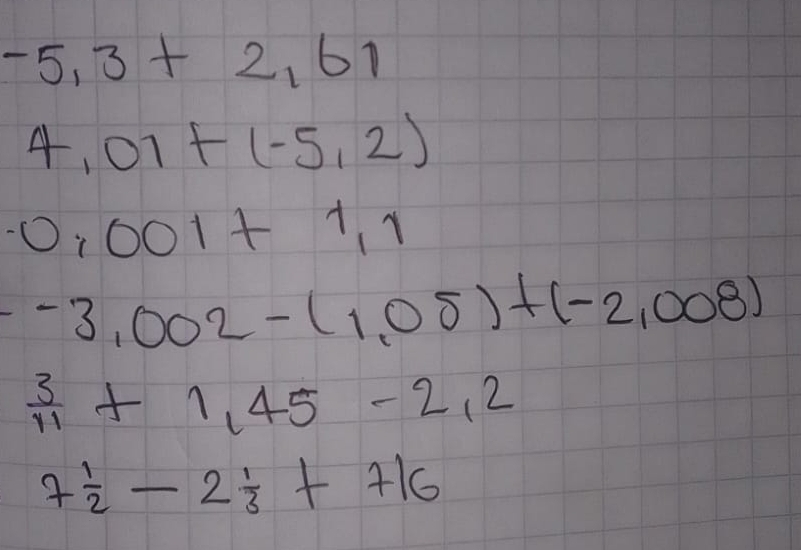 -5,3 + 2,61
4,01 + (-5,2)
-0,001 + 1,1
- -3,002 - (1,05) + (-2,008)
3/11 + 1,45 - 2,2
7 1/2 - 2 1/3 + 7/6